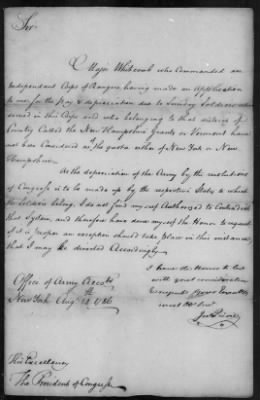 Sir,
Major Whitcomb who Commanded an
Independent Corps of Rangers having made an application
to me for the Pay & depreciation due to Sundry Soldiers who
served in this Corps and who belonging to that district of
Country Called the New Hampshire Grants or Vermont have
not been Considered as the quota either of New York or New
Hampshire
As the depreciation of the Army by the resolutions
of Congress is to be made up by the respective States to which
the Soldiers belong. I do not find myself Authorized to Contradict
that System, and therefore have done myself the Honor to request
if it is proper an exception should take place in this instance
that I may be directed Accordingly
I have the Honor to be
with great consideration
& respect Your Excellys
most Ob Servt
Office of Army Accots
New York Augt 1786
His Excellency
The President of Congress